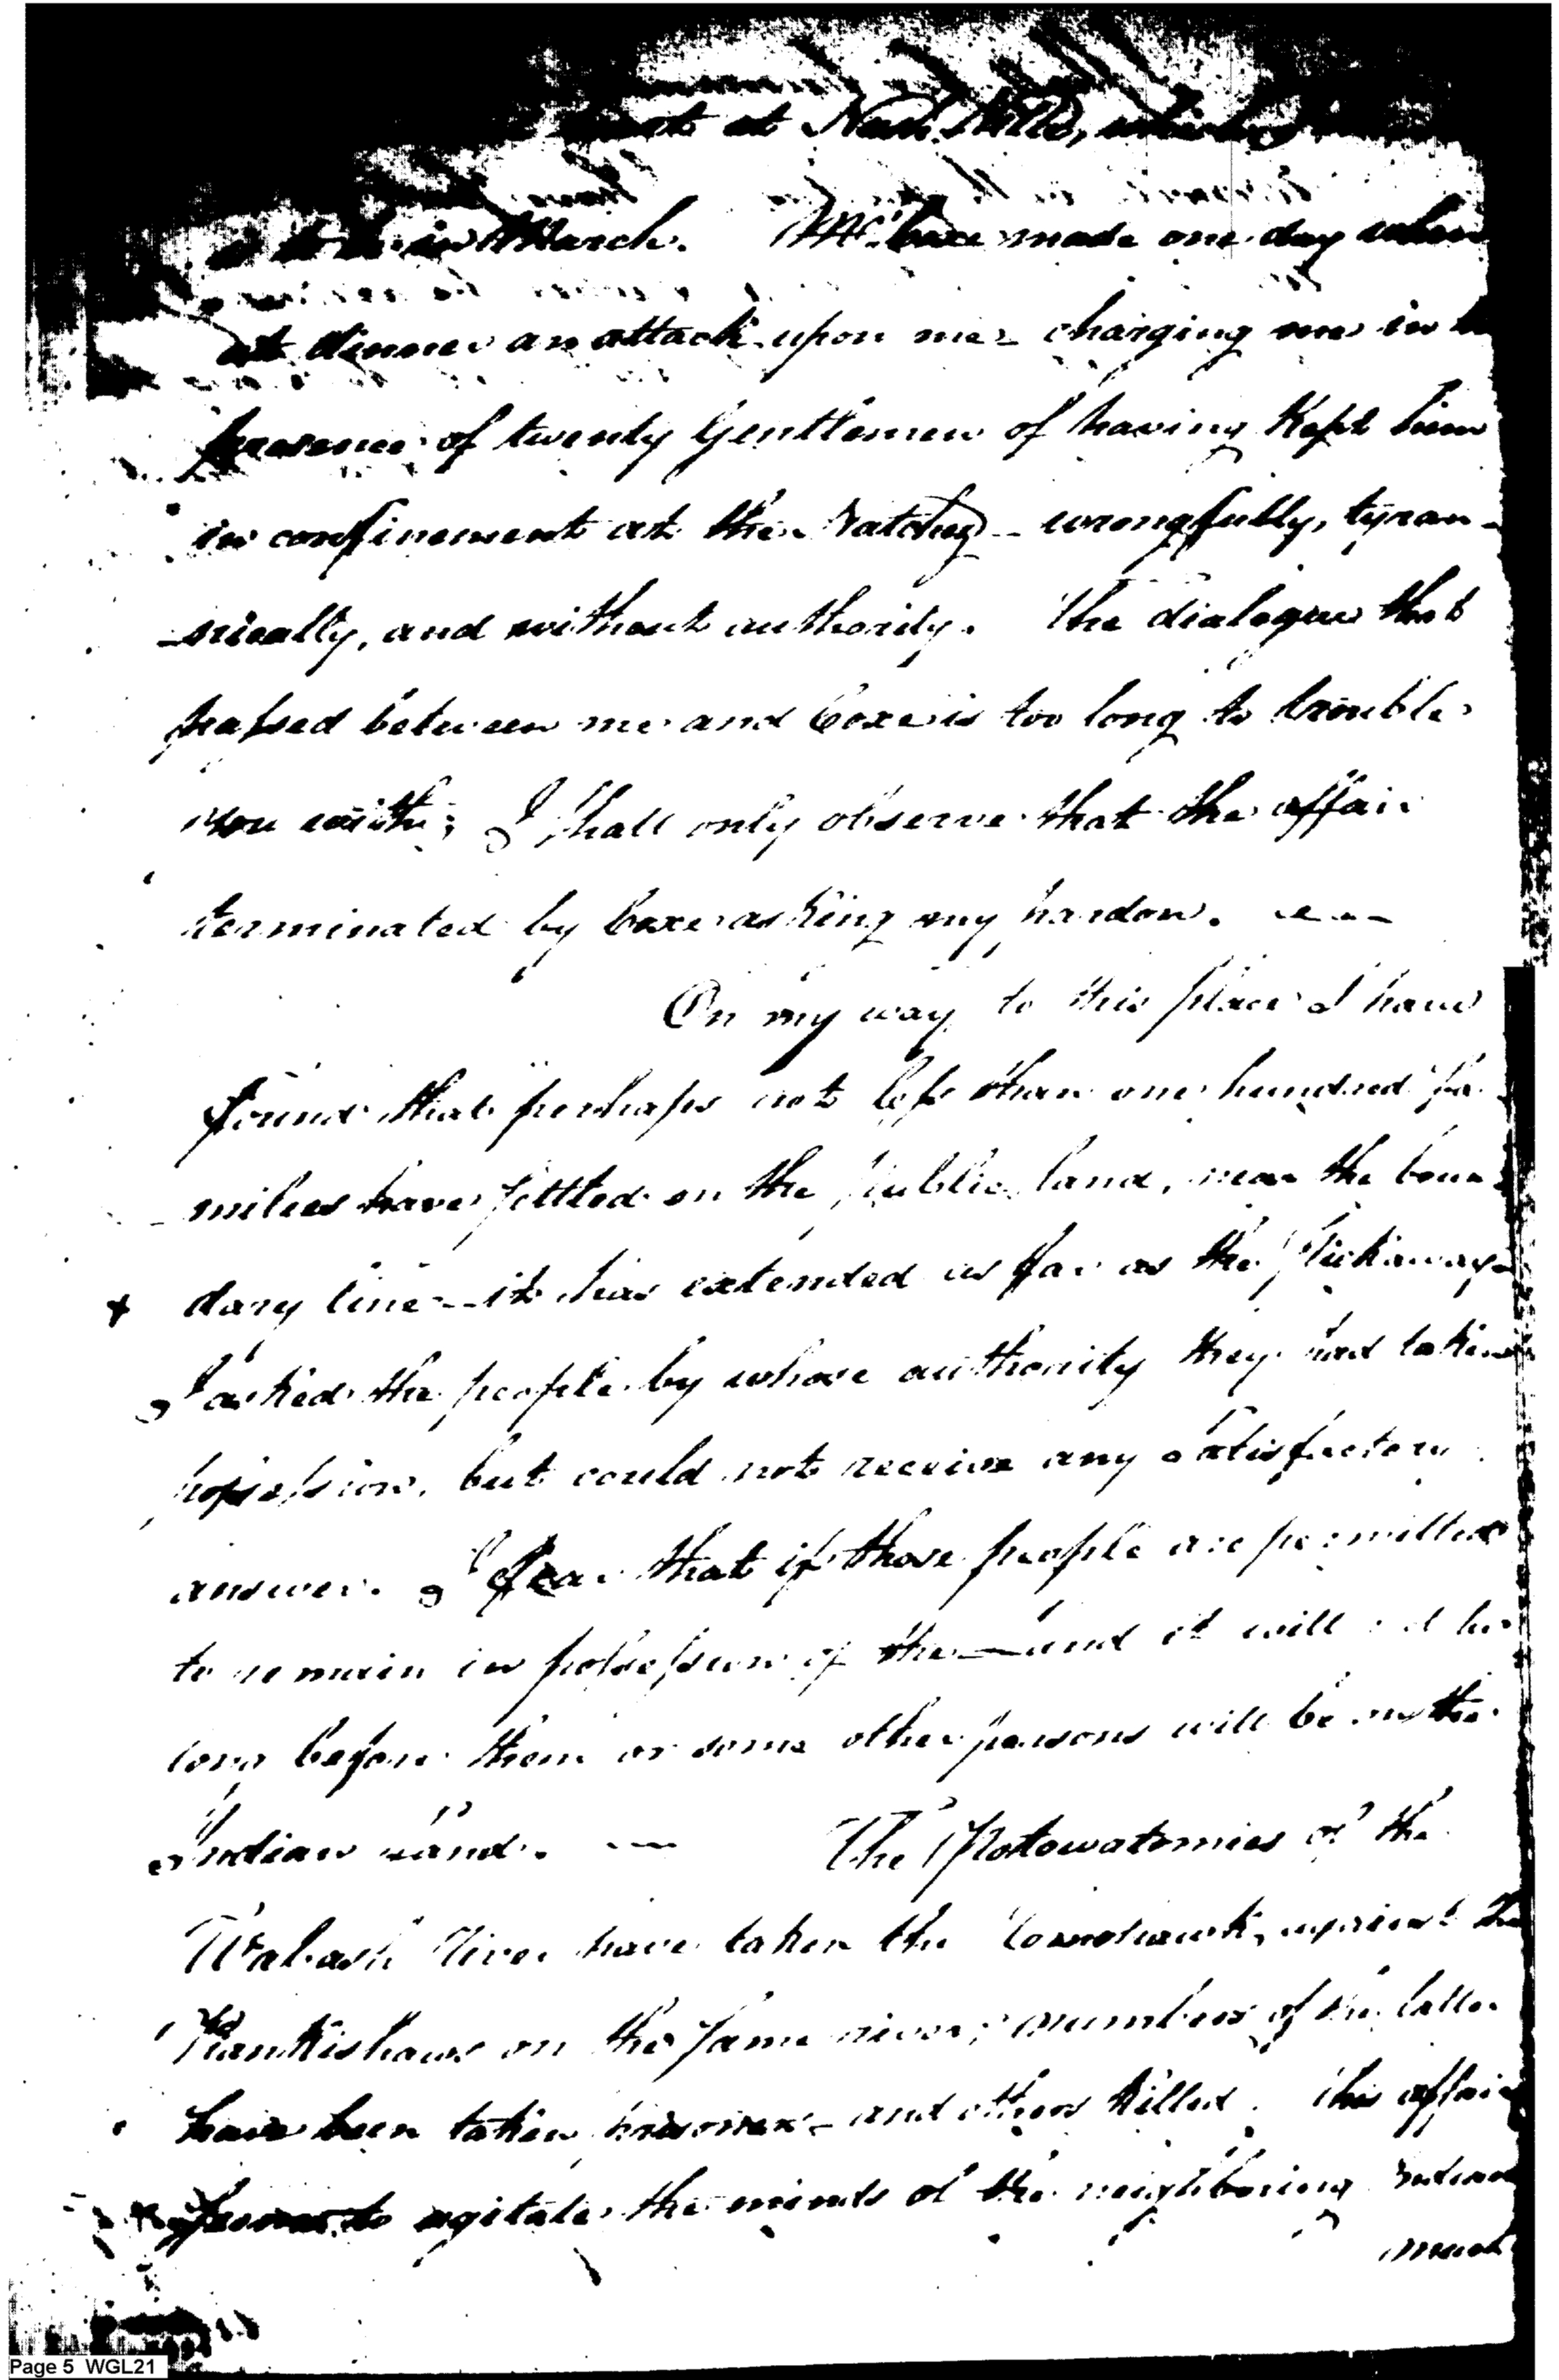 at Nash Mills, which
in March. Mr. Coxe made one day when
at dinner an attack upon me - charging me in
presence of twenty Gentlemen of having Kept him
in confinement at the Natchez - wrongfully, tyran-
-nically, and without authority. The dialogue that
passed between me and Coxe is too long to trouble
you with; I shall only observe that the affair
terminated by Coxe asking my pardon. ---
On my way to this place I have
found that perhaps not less than one hundred fa-
-milies have settled on the public land, near the boun-
dary line - it has extended as far as the Pickaways
I asked the people by whose authority they had taken
possession, but could not receive any satisfactory
answer. I fear that if those people are permitted
to remain in possession of the land it will not be
long before them or some other persons will be on the
Indian land. --- The Potowatomies of the
Wabash River have taken the Tomohawk, against the
Piankishaws on the same river; numbers of the latter
have been taken prisoner - and others killed. This affair
seems to agitate the minds of the neighboring Indians
much
Page 5 WGL21